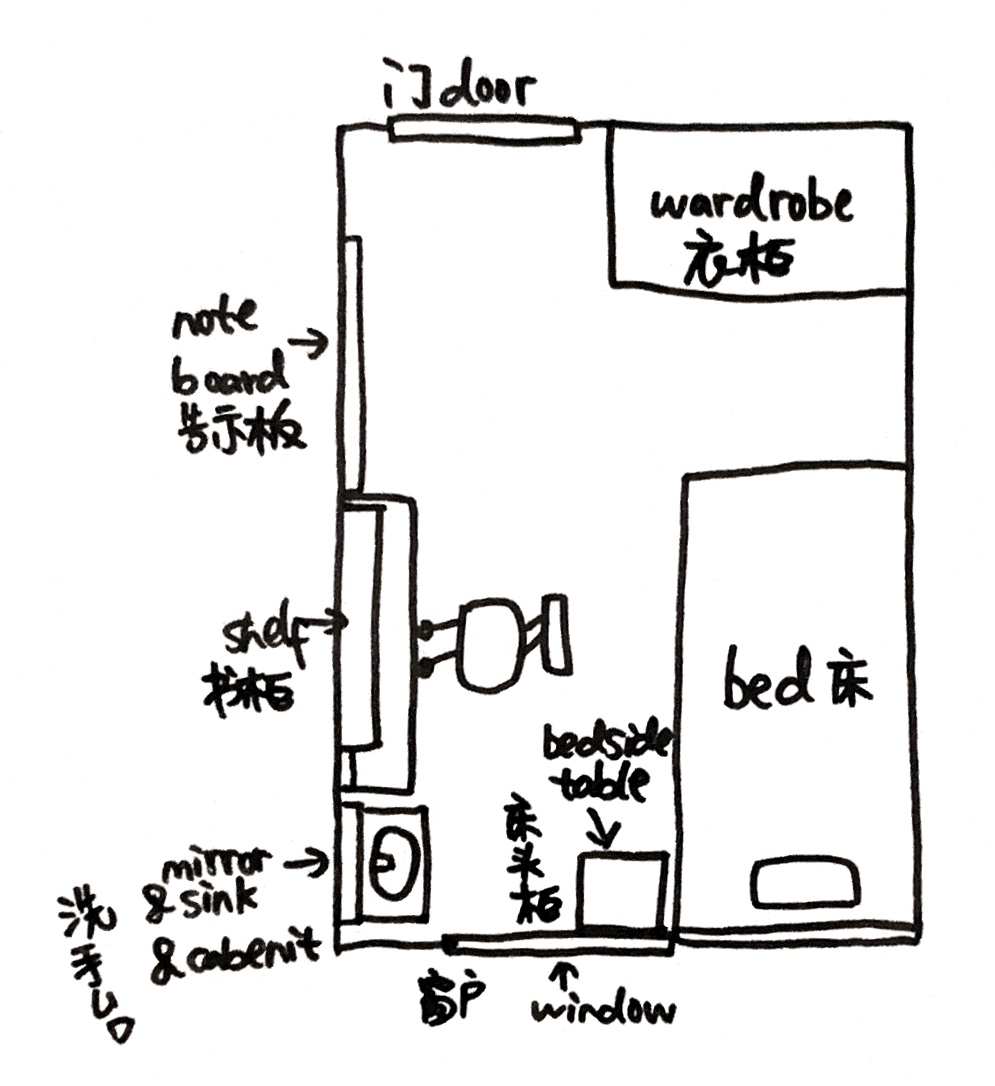 门door
wardrobe
衣柜
note
board
告示板
shelf
书柜
bed 床
bedside
table
床
头
柜
mirror
& sink
& cabenit
洗
手
间
窗户
window